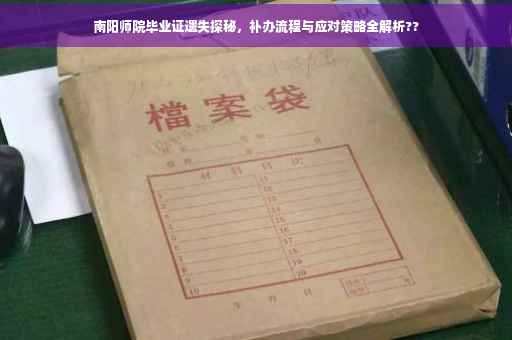 南阳师院毕业证遗失探秘，补办流程与应对策略全解析??
檔案袋
材料目次
1 11
2 12
3 13
4 14
5 15
6 16
7 17
8 18
9 19
10 20
年 月 日